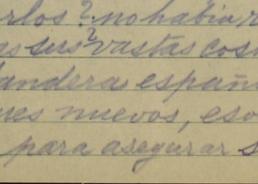 rlos? no había
as sus? vastas cos
andera españ
ues nuevos, eso
para asegurar s